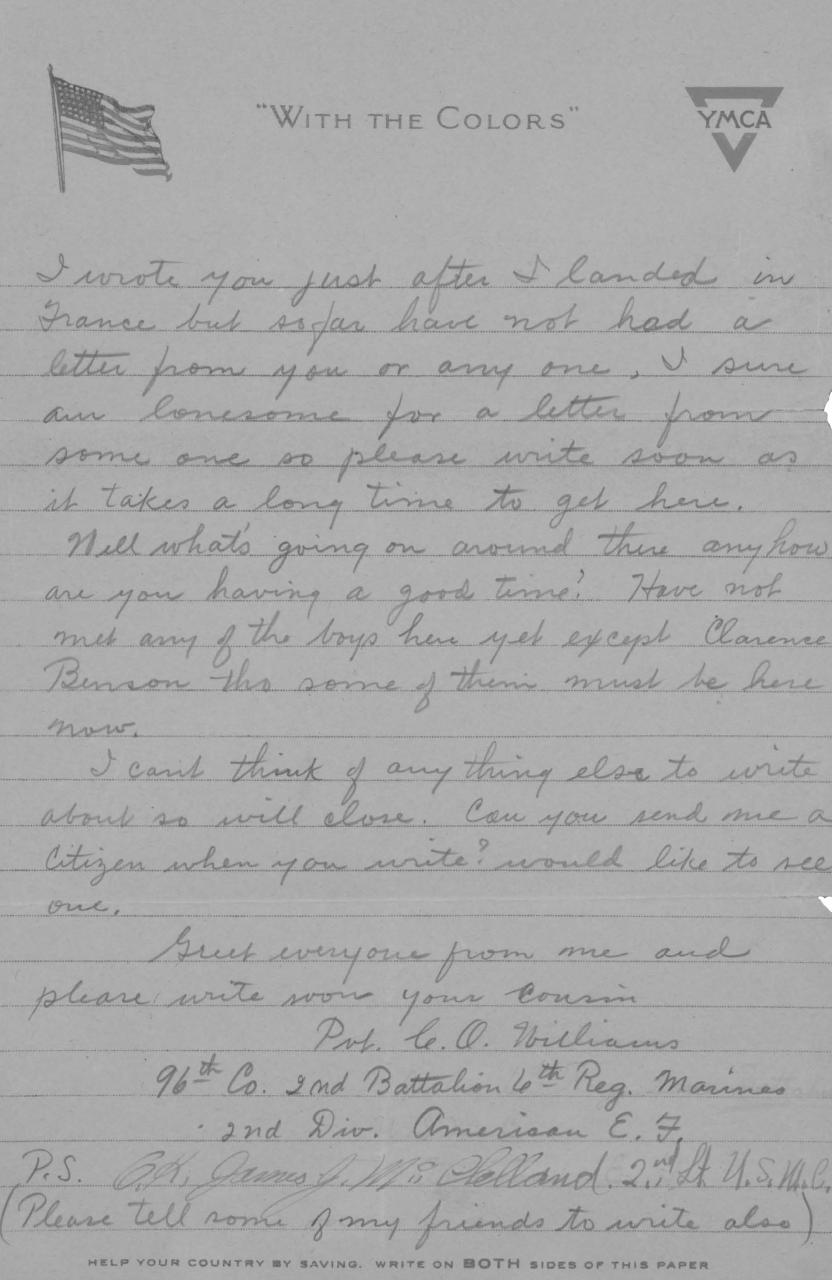 "WITH THE COLORS"
YMCA
I wrote you just after I landed in
France but so far have not had a
letter from you or any one, I sure
am lonesome for a letter from
some one so please write soon as
it takes a long time to get here.
Well what's going on around there anyhow
are you having a good time? Have not
met any of the boys here yet except Clarence
Benson tho some of them must be here
now.
I cant think of any thing else to write
about so will close. Can you send me a
Citizen when you write? would like to see
one.
Greet everyone from me and
please write soon your Cousin
Pvt. C. O. Williams
96th Co. 2nd Battalion 6th Reg. Marines
2nd Div. American E. F.
P.S. O.K. James J. McClelland. 2nd Lt. U.S.M.C.
(Please tell some of my friends to write also)
HELP YOUR COUNTRY BY SAVING. WRITE ON BOTH SIDES OF THIS PAPER